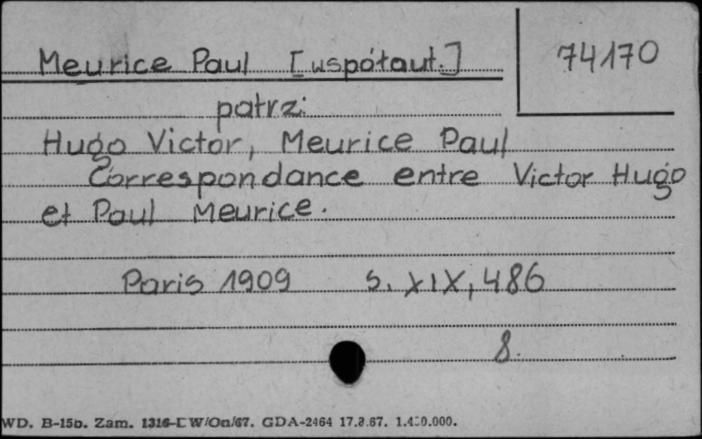 Meurice Paul [współaut.]
74170
patrz:
Hugo Victor, Meurice Paul
Correspondance entre Victor Hugo
et Paul Meurice.
Paris 1909 s. XIX, 486
8.
WD. B-15b. Zam. GDA-2464 17.8.67.